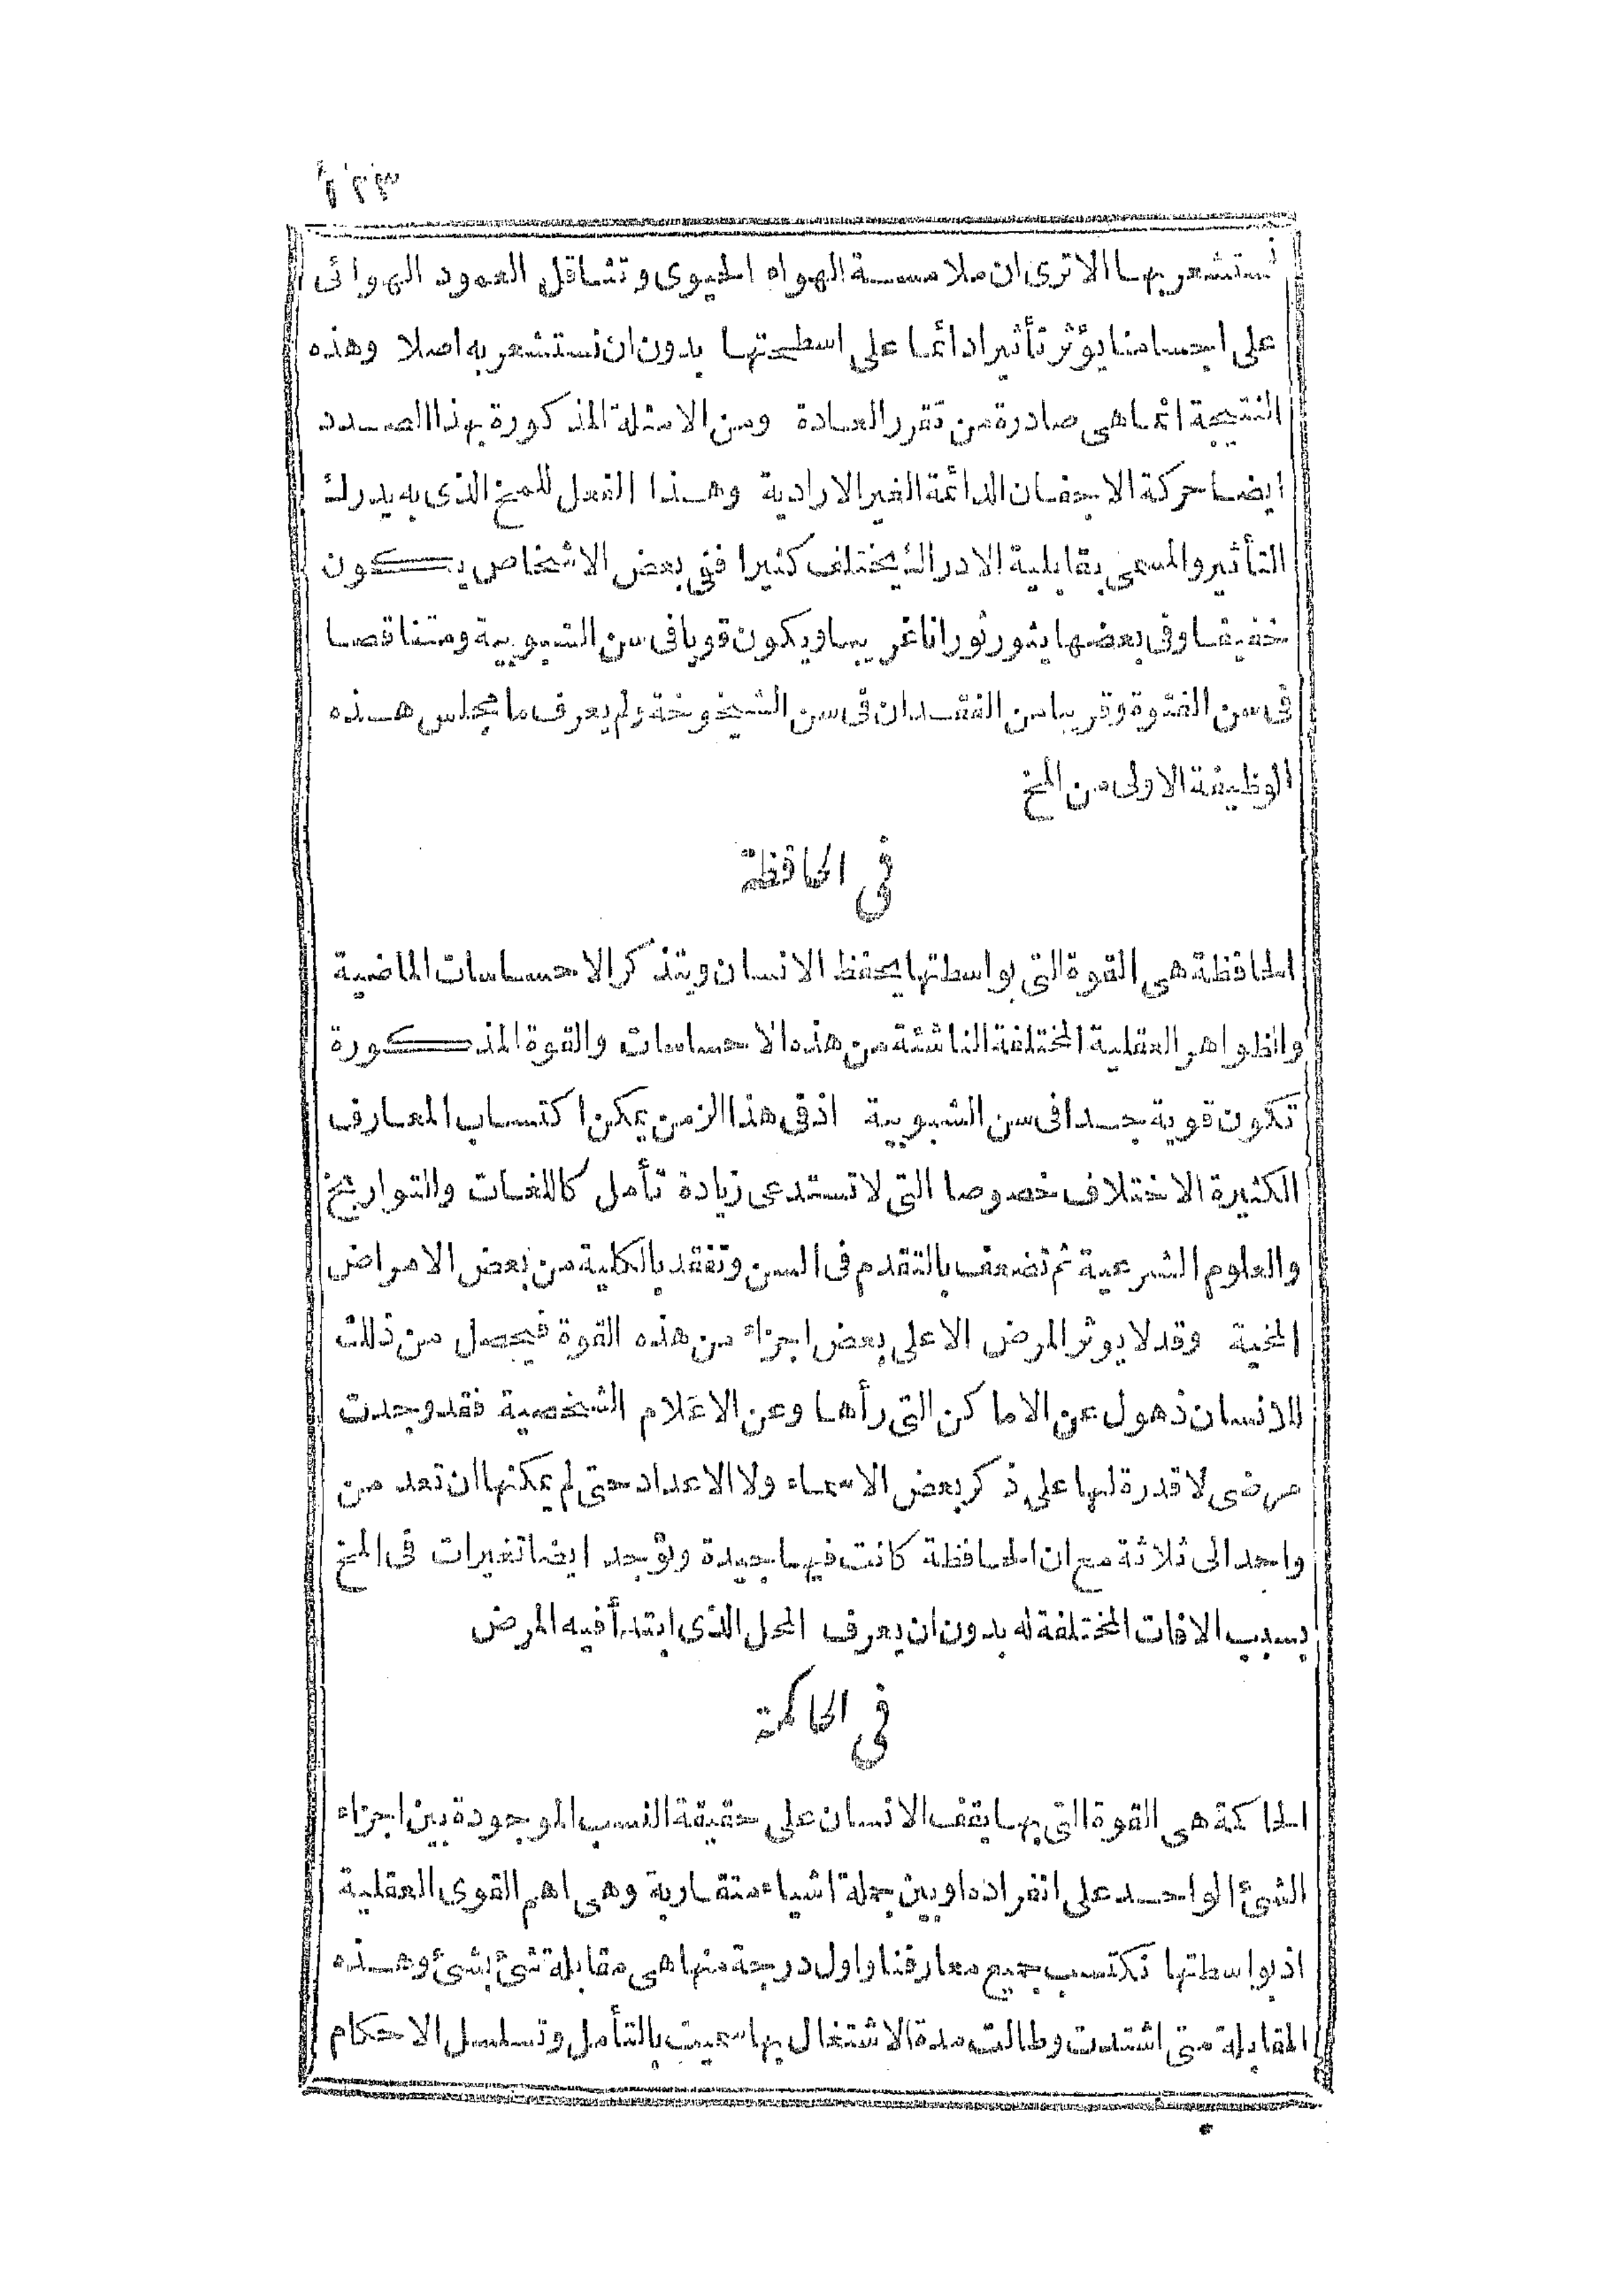 ١٢٣
نستشعر بها الا ترى ان ملامسة الهواء الحيوى وتثاقل العمود الهوائى
على اجسامنا يؤثر تأثيرا دائما على اسطحتها بدون ان نستشعر به اصلا وهذه
النتيجة انما هى صادرة من تقرر العادة ومن الامثلة المذكورة بهذا الصدد
ايضا حركة الاجفان الدائمة الغير الارادية وهذا الفعل للمخ الذى به يدرك
التأثير والمسمى بقابلية الادراك يختلف كثيرا ففى بعض الاشخاص يكون
خفيفا وفى بعضها يثور ثورانا غريبا ويكون قويا فى سن الشبوبية ومتناقصا
فى سن الفتوة وقريبا من الفقدان فى سن الشيخوخة ولم يعرف ما مجلس هذه
الوظيفة الاولى من المخ
فى الحافظة
الحافظة هى القوة التى بواسطتها يحفظ الانسان ويتذكر الاحساسات الماضية
والظواهر العقلية المختلفة الناشئة من هذه الاحساسات والقوة المذكورة
تكون قوية جدا فى سن الشبوبية اذ فى هذا الزمن يمكن اكتساب المعارف
الكثيرة الاختلاف خصوصا التى لا تستدعى زيادة تأمل كاللغات والتواريخ
والعلوم الشرعية ثم تضعف بالتقدم فى السن وتفقد بالكلية من بعض الامراض
المخية وقد لا يوثر المرض الا على بعض اجزاء من هذه القوة فيحصل من ذلك
للانسان ذهول عن الاماكن التى رأها وعن الاعلام الشخصية فقد وجدت
مرضى لا قدرة لها على ذكر بعض الاسماء ولا الاعداد حتى لم يمكنها ان تعد من
واحد الى ثلاثة مع ان الحافظة كانت فيها جيدة وتوجد ايضا تغيرات فى المخ
بسبب الافات المختلفة له بدون ان يعرف المحل الذى ابتدأ فيه المرض
فى الحاكمة
الحاكمة هى القوة التى بها يقف الانسان على حقيقة النسب الموجودة بين اجزاء
الشئ الواحد على انفراده او بين جملة اشياء متقاربة وهى اهم القوى العقلية
اذ بواسطتها نكتسب جميع معارفنا واول درجة منها هى مقابلة شئ بشئ وهذه
المقابلة متى اشتدت وطالت مدة الاشتغال بها سميت بالتأمل وتسلسل الاحكام